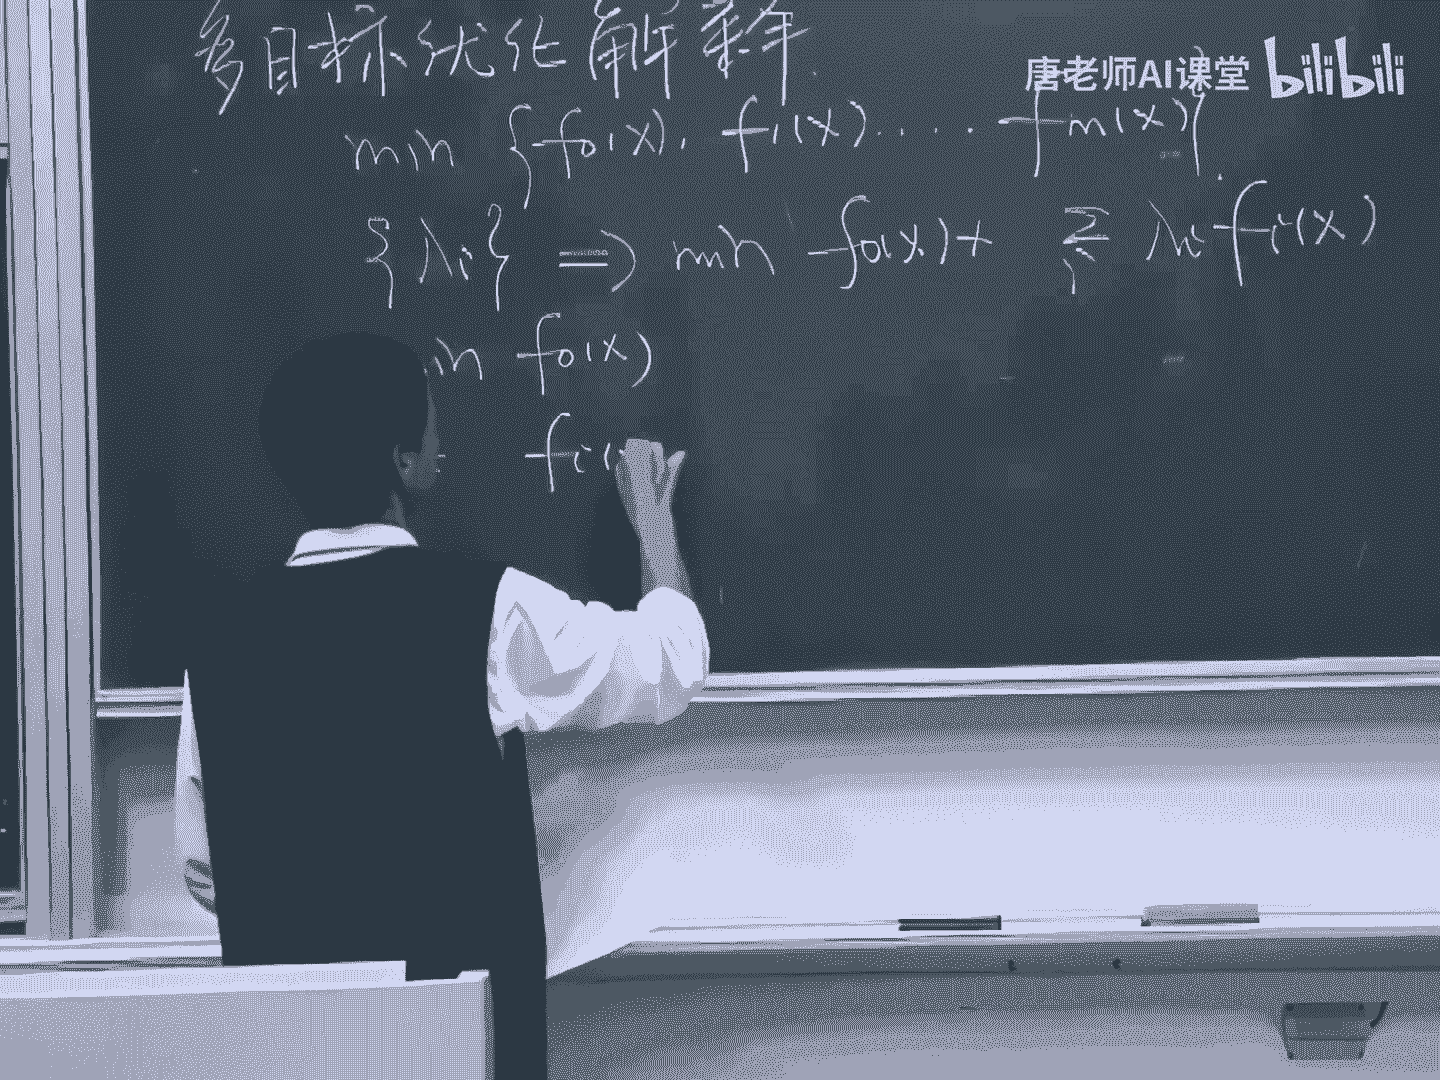 多目标优化解释
唐老师AI课堂 bilibili
min {f0(x), f1(x).... fm(x)}
{λi} => min f0(x) + Σi λi fi(x)
in f0(x)
fi(